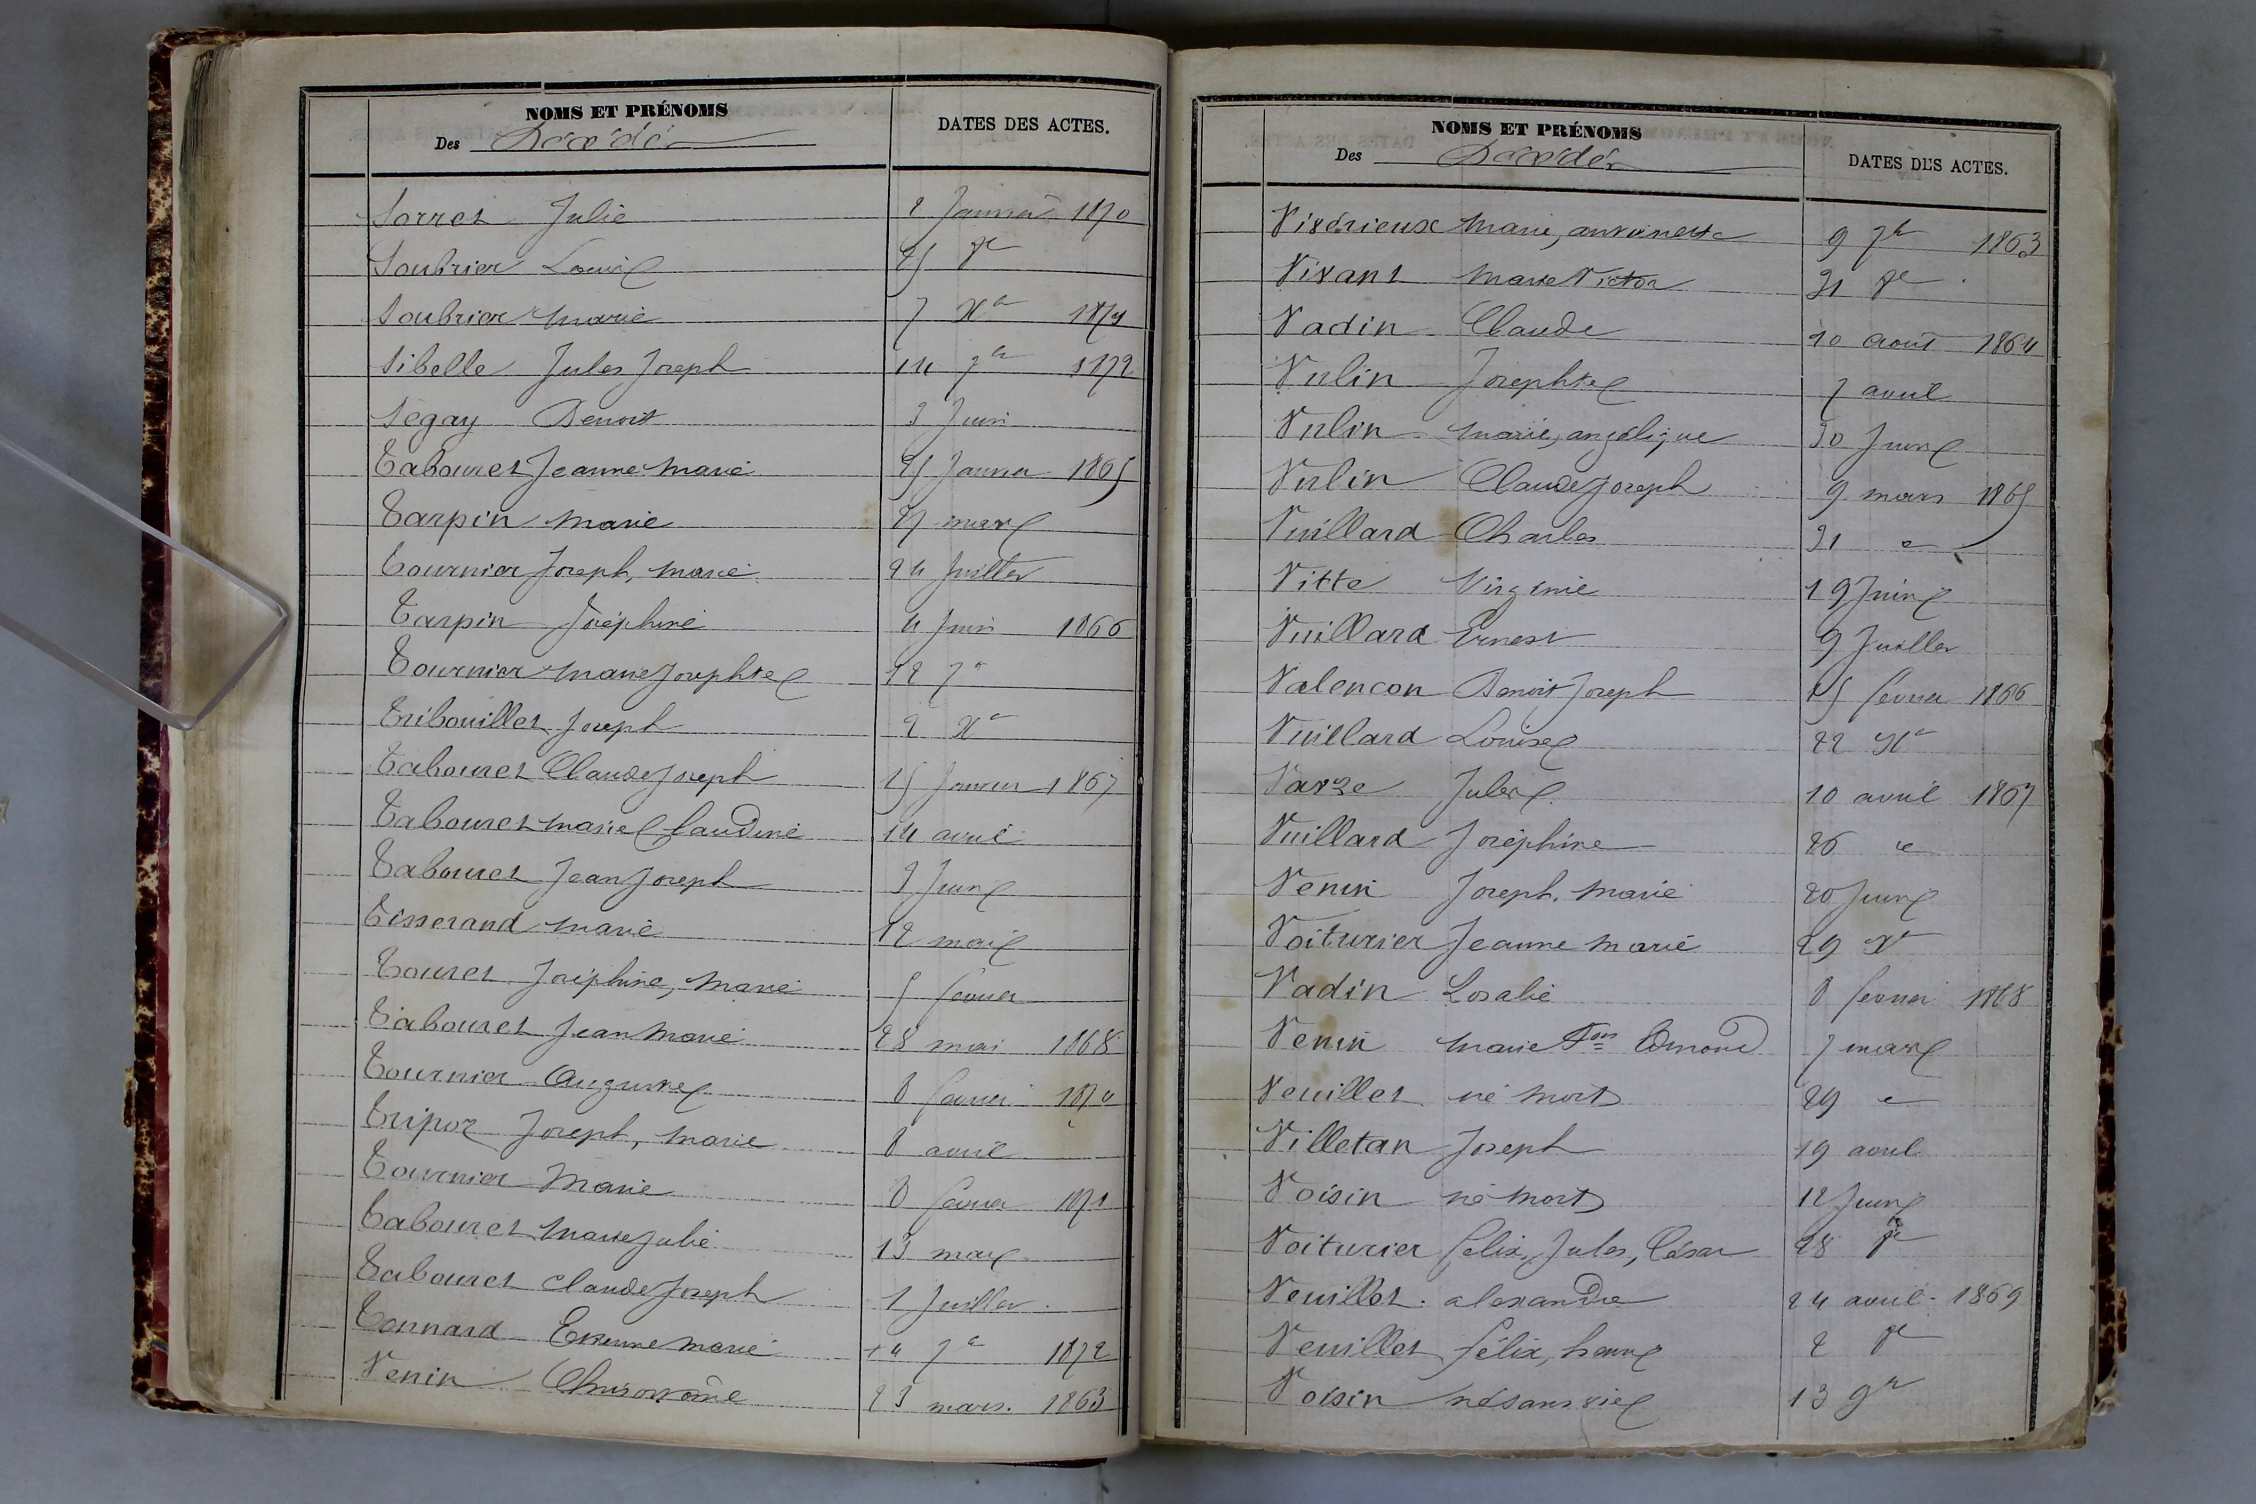 NOMS ET PRÉNOMS
Des Décédés
DATES DES ACTES.
Sorret Julie 2 Janvier 1870
Soubrier Louise 25 d°
Soubrier Marie 7 Xe 1871
Sibelle Jules Joseph 14 7e 1872
Ségay Benoit 3 Juin
Tabouret Jeanne Marie 25 Janvier 1865
Tarpin Marie 27 mars
Tournier Joseph, Marie 24 Juillet
Tarpin Joséphine 4 Juin 1866
Tournier Marie Josephte 12 7e
Tribouillet Joseph 2 Xe
Tabouret Claude Joseph 15 Janvier 1867
Tabouret Marie Claudine 14 avril
Tabouret Jean Joseph 3 Juin
Tisserand Marie 12 mai
Touret Joséphine, Marie 5 février
Tabouret Jean Marie 28 mai 1868
Tournier Augustine 8 février 1870
Tripoz Joseph, Marie 8 avril
Tournier Marie 8 février 1871
Tabouret Marie Julie 13 mars
Tabouret Claude Joseph 1 Juillet
Tonnard Etienne Marie 14 7e 1872
Venin Chrisostôme 23 mars. 1863
NOMS ET PRÉNOMS
Des Décédés
DATES DES ACTES.
Vizérieux Marie, antoinette 9 7e 1863
Vivant Marie Victor 31 d°
Vadin Claude 10 août 1864
Vulin Josephte 7 avril
Vulin Marie, angélique 30 Juin
Vulin Claude Joseph 9 mars 1865
Vuillard Charles 31 "
Vitte Virginie 19 Juin
Vuillard Ernest 9 Juillet
Valencon Benoit Joseph 25 février 1866
Vuillard Louise 22 Xe
Varze Jules 10 avril 1867
Vuillard Joséphine 26 "
Venin Joseph. Marie 20 Juin
Voiturier Jeanne Marie 29 Xe
Vadin Rosalie 8 février 1868
Venin Marie Fois Edmond 7 mars
Veuillet né mort 29 "
Villetan Joseph 19 avril
Voisin né mort 12 Juin
Voiturier félix, Jules, César 28 d°
Veuillet. alexandre 24 avril 1869
Veuillet félix, henri 2 d°
Voisin né sans vie 13 9e